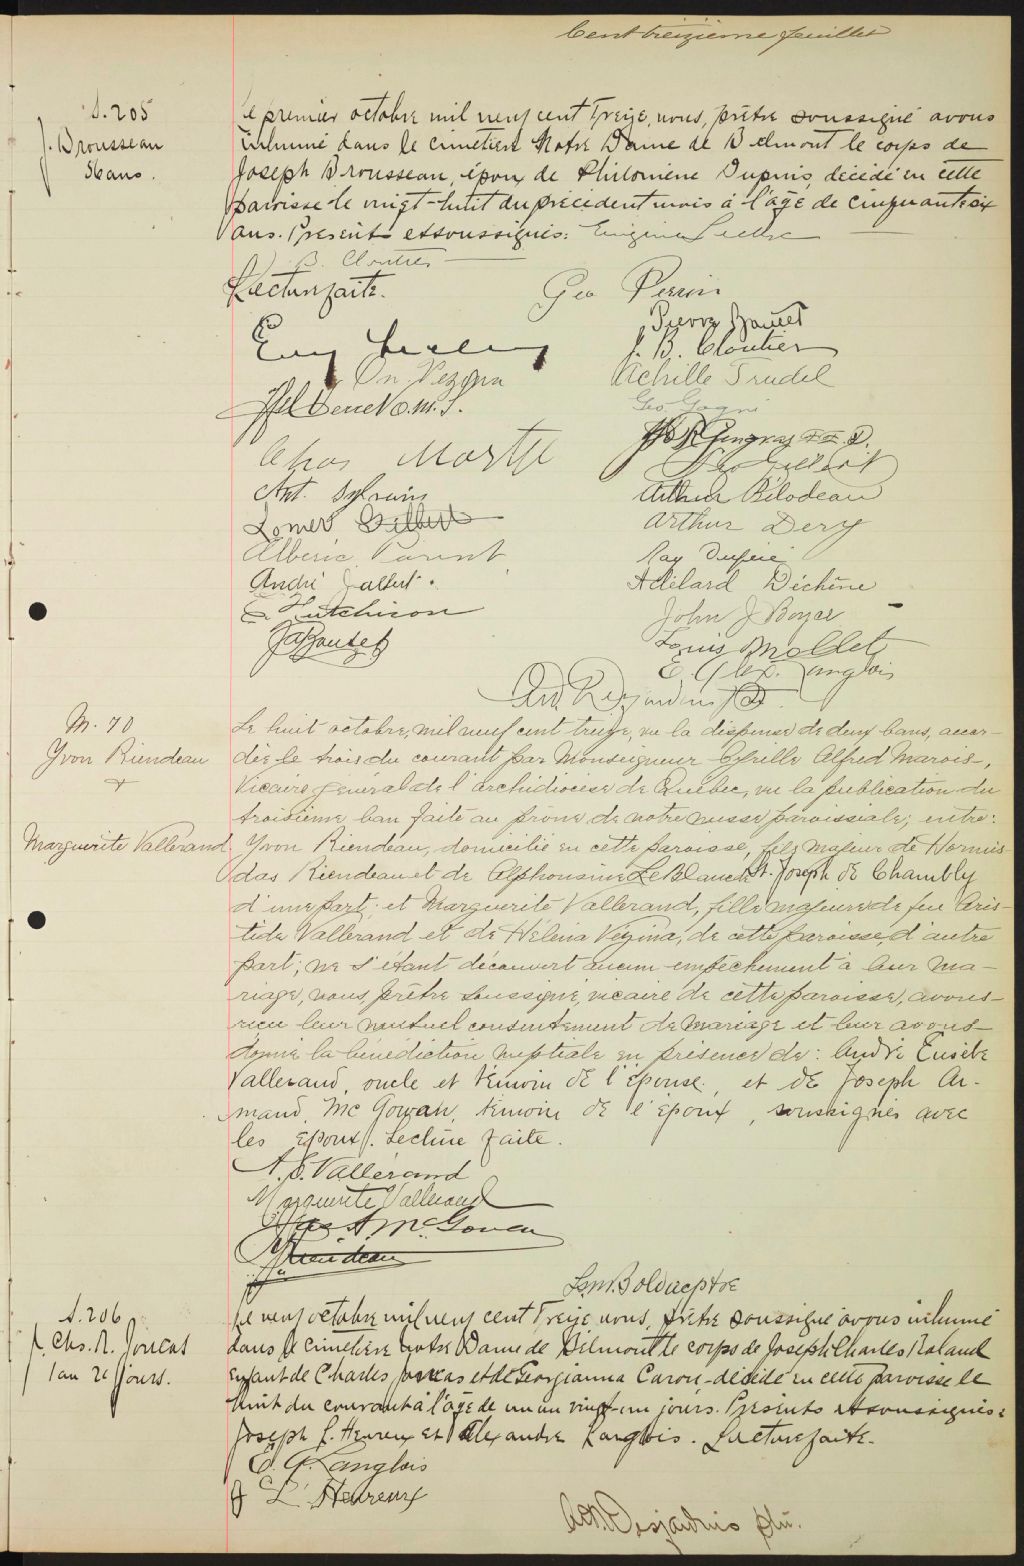 Cent treizième feuillet
S. 205
J. Brousseau
56 ans.
Le premier octobre mil neuf cent Treize, nous, prêtre soussigné avons
inhumé dans le cimetière Notre Dame de Belmont le corps de
Joseph Brousseau, époux de Philomène Dupuis, décédé en cette
paroisse le vingt-huit du précédent mois à l'âge de cinquante six
ans. Presents et soussignés: Eugène Leclerc
B. Cloutier
Lecture faite.
Geo Perron
Pierre
J. B. Cloutier
Achille Trudel
Geo. Gagné
Chas
Ant. Sylvain
Arthur Bilodeau
Lomer Gilbert
Arthur Dery
Alberic Parent
Ray Dupéré
André Jalbert.
Adélard Déchène
E Hutchison
John J Boyer
Louis Mollet
E. Alex. Langlois
Ad. Desjardins
M. 70
Yvon Riendeau
&
Marguerite Vallerand
Le huit octobre, mil neuf cent treize, vu la dispense de deux bans, accor-
dée le trois du courant par Monseigneur Cyrille Alfred Marois,
Vicaire général de l'archidiocèse de Québec, vu la publication du
troisième ban faite au prône de notre messe paroissiale; entre:
Yvon Riendeau, domicilié en cette paroisse, fils majeur de Hormis-
das Riendeau et de Alphonsine LeBlanc de St. Joseph de Chambly
d'une part; et Marguerite Vallerand, fille majeure de feu Aris-
tide Vallerand et de Héléna Vézina, de cette paroisse, d'autre
part; ne s'étant découvert aucun empêchement à leur ma-
riage, nous, prêtre soussigné, vicaire de cette paroisse, avons
reçu leur mutuel consentement de mariage et leur avons
donné la bénédiction nuptiale en présence de: André Eusèbe
Vallerand, oncle et témoin de l'épouse, et de Joseph Ar-
mand, Mc Gowan, témoin de l'époux, soussignés avec
les époux. Lecture faite.
A. E. Vallérand
Marguerite Vallerand
Jos A. McGowan
Riendeau
Bolduc ptre
S. 206
J. Chs. R. Joncas
1 an 21 jours.
Le neuf octobre mil neuf cent Treize nous, prêtre soussigné avons inhumé
dans le cimetière Notre Dame de Belmont le corps de Joseph Charles Roland
enfant de Charles Joncas et de Georgianna Caron, décédé en cette paroisse le
huit du courant à l'âge de un an vingt-un jours. Presents et soussignés:
Joseph L'Heureux et Alexandre Langlois. Lecture faite.
E. A. Langlois
J L'Heureux
Ad. Desjardins ptre.